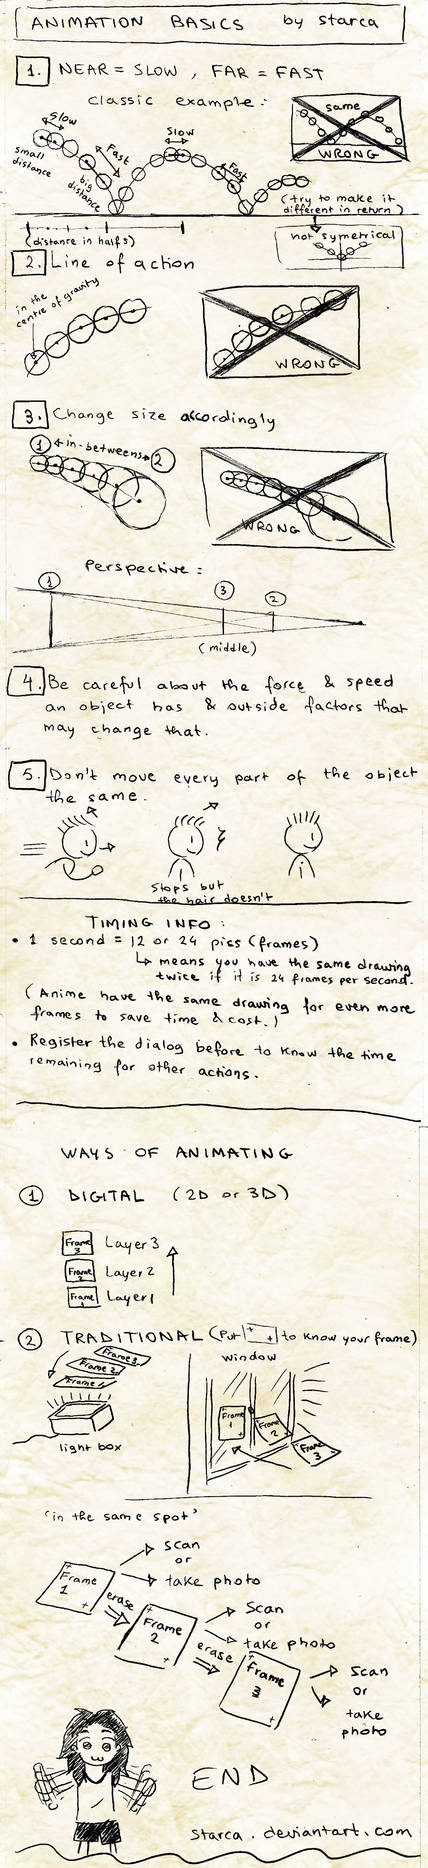 ANIMATION BASICS by starca
1. NEAR = SLOW, FAR = FAST
classic example:
same
WRONG
Slow
small distance
Fast
big distance
Slow
Fast
(try to make it
different in return)
(distance in halfs)
not symetrical
2. Line of action
in the
centre of gravity
WRONG
3. Change size accordingly
1 in-betweens 2
WRONG
Perspective:
1
3
2
(middle)
4. Be careful about the force & speed
an object has & outside factors that
may change that.
5. Don't move every part of the object
the same.
stops but
the hair doesn't
TIMING INFO:
• 1 second = 12 or 24 pics (frames)
means you have the same drawing
twice if it is 24 frames per second.
(Anime have the same drawing for even more
frames to save time & cost.)
• Register the dialog before to know the time
remaining for other actions.
WAYS OF ANIMATING
1 DIGITAL (2D or 3D)
Frame 3 Layer 3
Frame 2 Layer 2
Frame 1 Layer 1
2 TRADITIONAL (Put + + to know your frame)
Frame 3
Frame 2
Frame 1
light box
window
Frame 1
Frame 2
Frame 3
"in the same spot"
Frame 1
scan
or
take photo
erase
Frame 2
Scan
or
take photo
erase
Frame 3
scan
or
take
photo
END
starca.deviantart.com